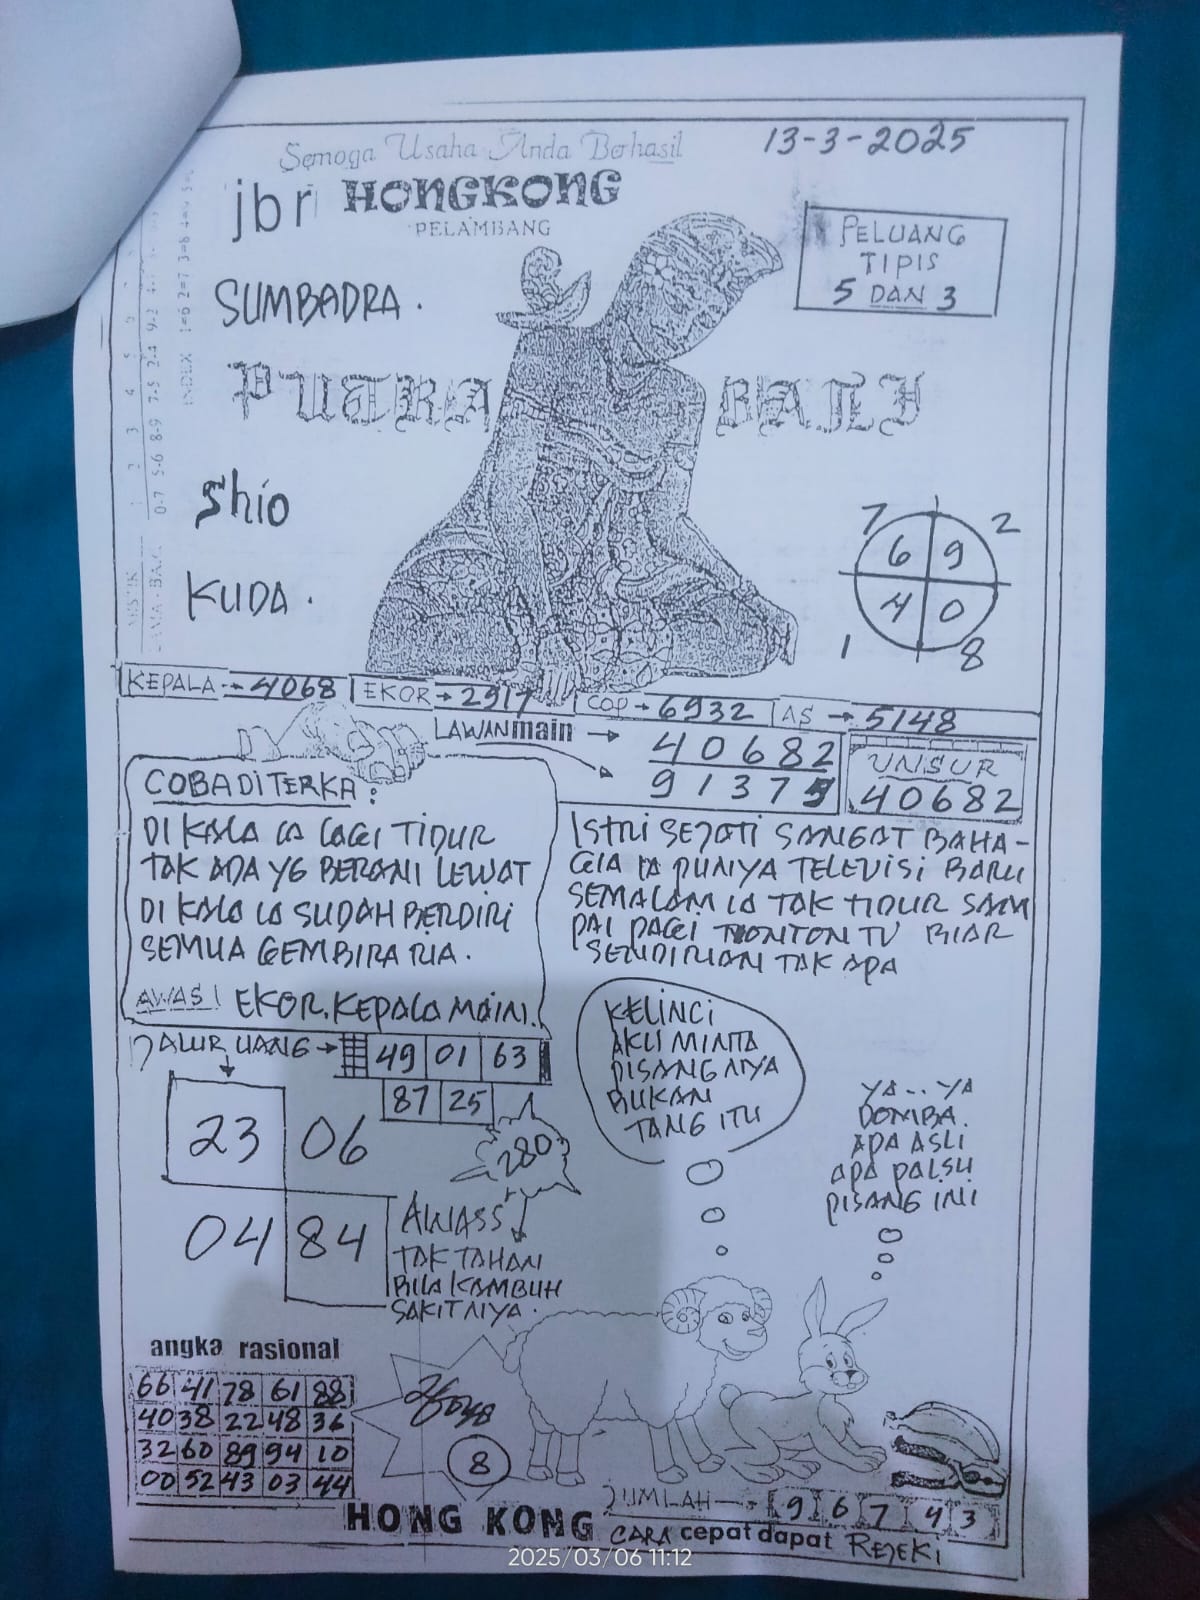 Semoga Usaha Anda Berhasil
13-3-2025
jbr HONGKONG
PELAMBANG
PELUANG
TIPIS
5 DAN 3
SUMBADRA.
PUTRA BALI
Shio
KUDA.
INDEX 1=6 2=7 3=8
0-7 5-6 8-9 7-5 2-4 9-2
7 2
6 9
4 0
1 8
KEPALA → 4068 EKOR → 2917 COP → 6932 AS → 5148
LAWAN main →
40682
91375
UNSUR
40682
COBA DITERKA:
DI KALA IA LAGI TIDUR
TAK ADA YG BERANI LEWAT
DI KALA IA SUDAH BERDIRI
SEMUA GEMBIRA RIA.
AWAS! EKOR.KEPALA MAIN.
ISTRI SEJATI SANGAT BAHA-
GIA IA PUNYA TELEVISI BARU
SEMALAM IA TAK TIDUR SAM
PAI PAGI NONTON TV BIAR
SENDIRIAN TAK APA
JALUR UANG → 49 01 63
87 25
23 06
280
04 84
AWASS
TAK TAHAN
BILA KAMBUH
SAKITNYA.
KELINCI
AKU MINTA
PISANGNYA
BUKAN
TANG ITU
YA..YA
DOMBA.
APA ASLI
APA PALSU
PISANG INI
angka rasional
66 41 78 61 88
40 38 22 48 36
32 60 89 94 10
00 52 43 03 44
8
JUMLAH → 9 6 7 4 3
HONG KONG CARA cepat dapat REJEKI
2025/03/06 11:12